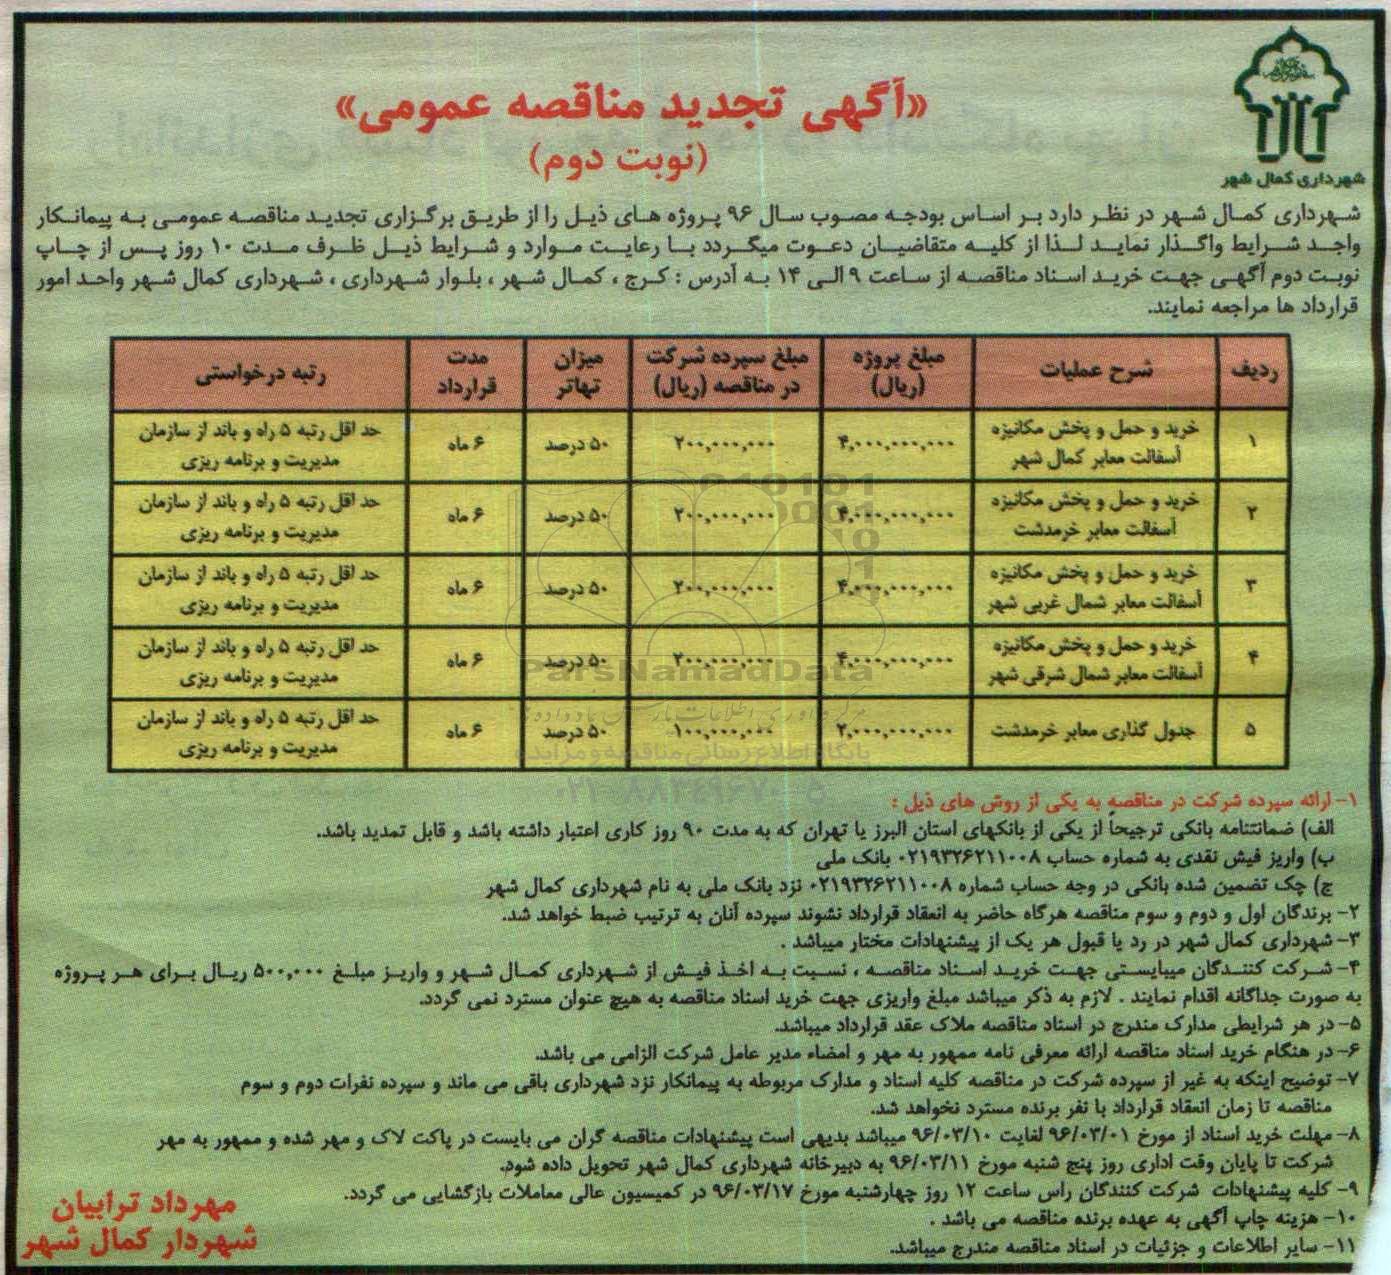 شهرداری کمال شهر
«آگهی تجدید مناقصه عمومی»
(نوبت دوم)
شهرداری کمال شهر در نظر دارد بر اساس بودجه مصوب سال ۹۶ پروژه های ذیل را از طریق برگزاری تجدید مناقصه عمومی به پیمانکار
واجد شرایط واگذار نماید لذا از کلیه متقاضیان دعوت میگردد با رعایت موارد و شرایط ذیل ظرف مدت ۱۰ روز پس از چاپ
نوبت دوم آگهی جهت خرید اسناد مناقصه از ساعت ۹ الی ۱۴ به آدرس : کرج ، کمال شهر ، بلوار شهرداری ، شهرداری کمال شهر واحد امور
قرارداد ها مراجعه نمایند.
ردیف شرح عملیات مبلغ پروژه (ریال) مبلغ سپرده شرکت در مناقصه (ریال) میزان تهاتر مدت قرارداد رتبه درخواستی
۱ خرید و حمل و پخش مکانیزه آسفالت معابر کمال شهر ۴,۰۰۰,۰۰۰,۰۰۰ ۲۰۰,۰۰۰,۰۰۰ ۵۰ درصد ۶ ماه حد اقل رتبه ۵ راه و باند از سازمان مدیریت و برنامه ریزی
۲ خرید و حمل و پخش مکانیزه آسفالت معابر خرمدشت ۴,۰۰۰,۰۰۰,۰۰۰ ۲۰۰,۰۰۰,۰۰۰ ۵۰ درصد ۶ ماه حد اقل رتبه ۵ راه و باند از سازمان مدیریت و برنامه ریزی
۳ خرید و حمل و پخش مکانیزه آسفالت معابر شمال غربی شهر ۴,۰۰۰,۰۰۰,۰۰۰ ۲۰۰,۰۰۰,۰۰۰ ۵۰ درصد ۶ ماه حد اقل رتبه ۵ راه و باند از سازمان مدیریت و برنامه ریزی
۴ خرید و حمل و پخش مکانیزه آسفالت معابر شمال شرقی شهر ۴,۰۰۰,۰۰۰,۰۰۰ ۲۰۰,۰۰۰,۰۰۰ ۵۰ درصد ۶ ماه حد اقل رتبه ۵ راه و باند از سازمان مدیریت و برنامه ریزی
۵ جدول گذاری معابر خرمدشت ۲,۰۰۰,۰۰۰,۰۰۰ ۱۰۰,۰۰۰,۰۰۰ ۵۰ درصد ۶ ماه حد اقل رتبه ۵ راه و باند از سازمان مدیریت و برنامه ریزی
ParsNamadData
پایگاه اطلاع رسانی مناقصه و مزایده
۱- ارائه سپرده شرکت در مناقصه به یکی از روش های ذیل :
الف) ضمانتنامه بانکی ترجیحاً از یکی از بانکهای استان البرز یا تهران که به مدت ۹۰ روز کاری اعتبار داشته باشد و قابل تمدید باشد.
ب) واریز فیش نقدی به شماره حساب ۰۲۱۹۳۲۶۲۱۱۰۰۸ بانک ملی
ج) چک تضمین شده بانکی در وجه حساب شماره ۰۲۱۹۳۲۶۲۱۱۰۰۸ نزد بانک ملی به نام شهرداری کمال شهر
۲- برندگان اول و دوم و سوم مناقصه هرگاه حاضر به انعقاد قرارداد نشوند سپرده آنان به ترتیب ضبط خواهد شد.
۳- شهرداری کمال شهر در رد یا قبول هر یک از پیشنهادات مختار میباشد .
۴- شرکت کنندگان میبایستی جهت خرید اسناد مناقصه ، نسبت به اخذ فیش از شهرداری کمال شهر و واریز مبلغ ۵۰۰,۰۰۰ ریال برای هر پروژه
به صورت جداگانه اقدام نمایند . لازم به ذکر میباشد مبلغ واریزی جهت خرید اسناد مناقصه به هیچ عنوان مسترد نمی گردد.
۵- در هر شرایطی مدارک مندرج در اسناد مناقصه ملاک عقد قرارداد میباشد.
۶- در هنگام خرید اسناد مناقصه ارائه معرفی نامه ممهور به مهر و امضاء مدیر عامل شرکت الزامی می باشد.
۷- توضیح اینکه به غیر از سپرده شرکت در مناقصه کلیه اسناد و مدارک مربوطه به پیمانکار نزد شهرداری باقی می ماند و سپرده نفرات دوم و سوم
مناقصه تا زمان انعقاد قرارداد با نفر برنده مسترد نخواهد شد.
۸- مهلت خرید اسناد از مورخ ۹۶/۰۳/۰۱ لغایت ۹۶/۰۳/۱۰ میباشد بدیهی است پیشنهادات مناقصه گران می بایست در پاکت لاک و مهر شده و ممهور به مهر
شرکت تا پایان وقت اداری روز پنج شنبه مورخ ۹۶/۰۳/۱۱ به دبیرخانه شهرداری کمال شهر تحویل داده شود.
۹- کلیه پیشنهادات شرکت کنندگان راس ساعت ۱۲ روز چهارشنبه مورخ ۹۶/۰۳/۱۷ در کمیسیون عالی معاملات بازگشایی می گردد.
۱۰- هزینه چاپ آگهی به عهده برنده مناقصه می باشد .
۱۱- سایر اطلاعات و جزئیات در اسناد مناقصه مندرج میباشد.
مهرداد ترابیان
شهردار کمال شهر